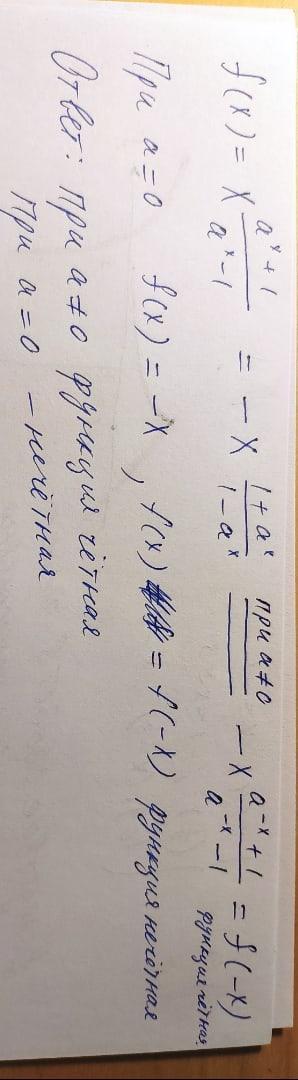 f(x) = x (a^x + 1)/(a^x − 1) = − x (1 + a^x)/(1 − a^x) =(при a≠0) − x (a^−x + 1)/(a^−x − 1) = f(−x)
функция чётная
При a=0 f(x) = −x , f(x) = f(−x) функция нечётная
Ответ: при a≠0 функция чётная
При a=0 – нечётная